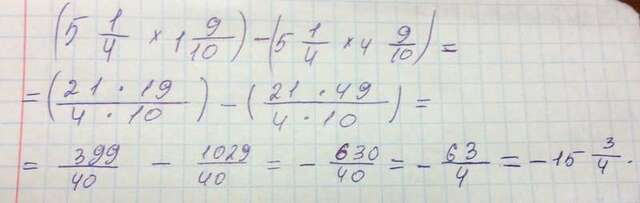 (5 1/4 × 1 9/10) - (5 1/4 × 4 9/10) =
= (21 · 19 / 4 · 10) - (21 · 49 / 4 · 10) =
= 399/40 - 1029/40 = - 630/40 = - 63/4 = - 15 3/4.